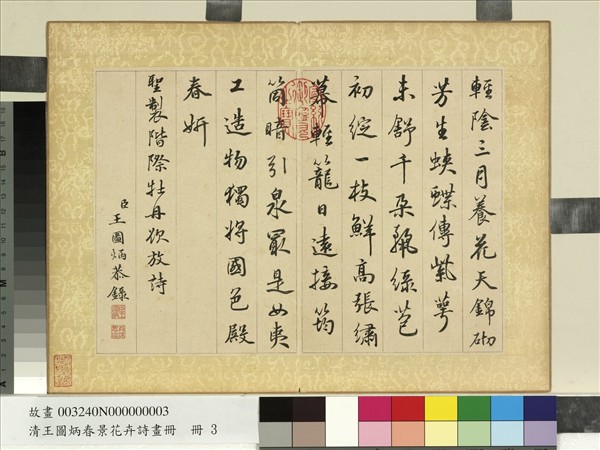 輕陰三月養花天錦砌
芳生蛺蝶傳紫萼
未舒千朵綠苞
初綻一枝鮮高張繡
幕輕籠日遠接筠
筒暗引泉冣是女夷
工造物獨將國色殿
春妍
聖製階際牡丹欲放詩
臣王圖炳恭錄
故畫 003240N000000003
清王圖炳春景花卉詩畫冊 冊 3